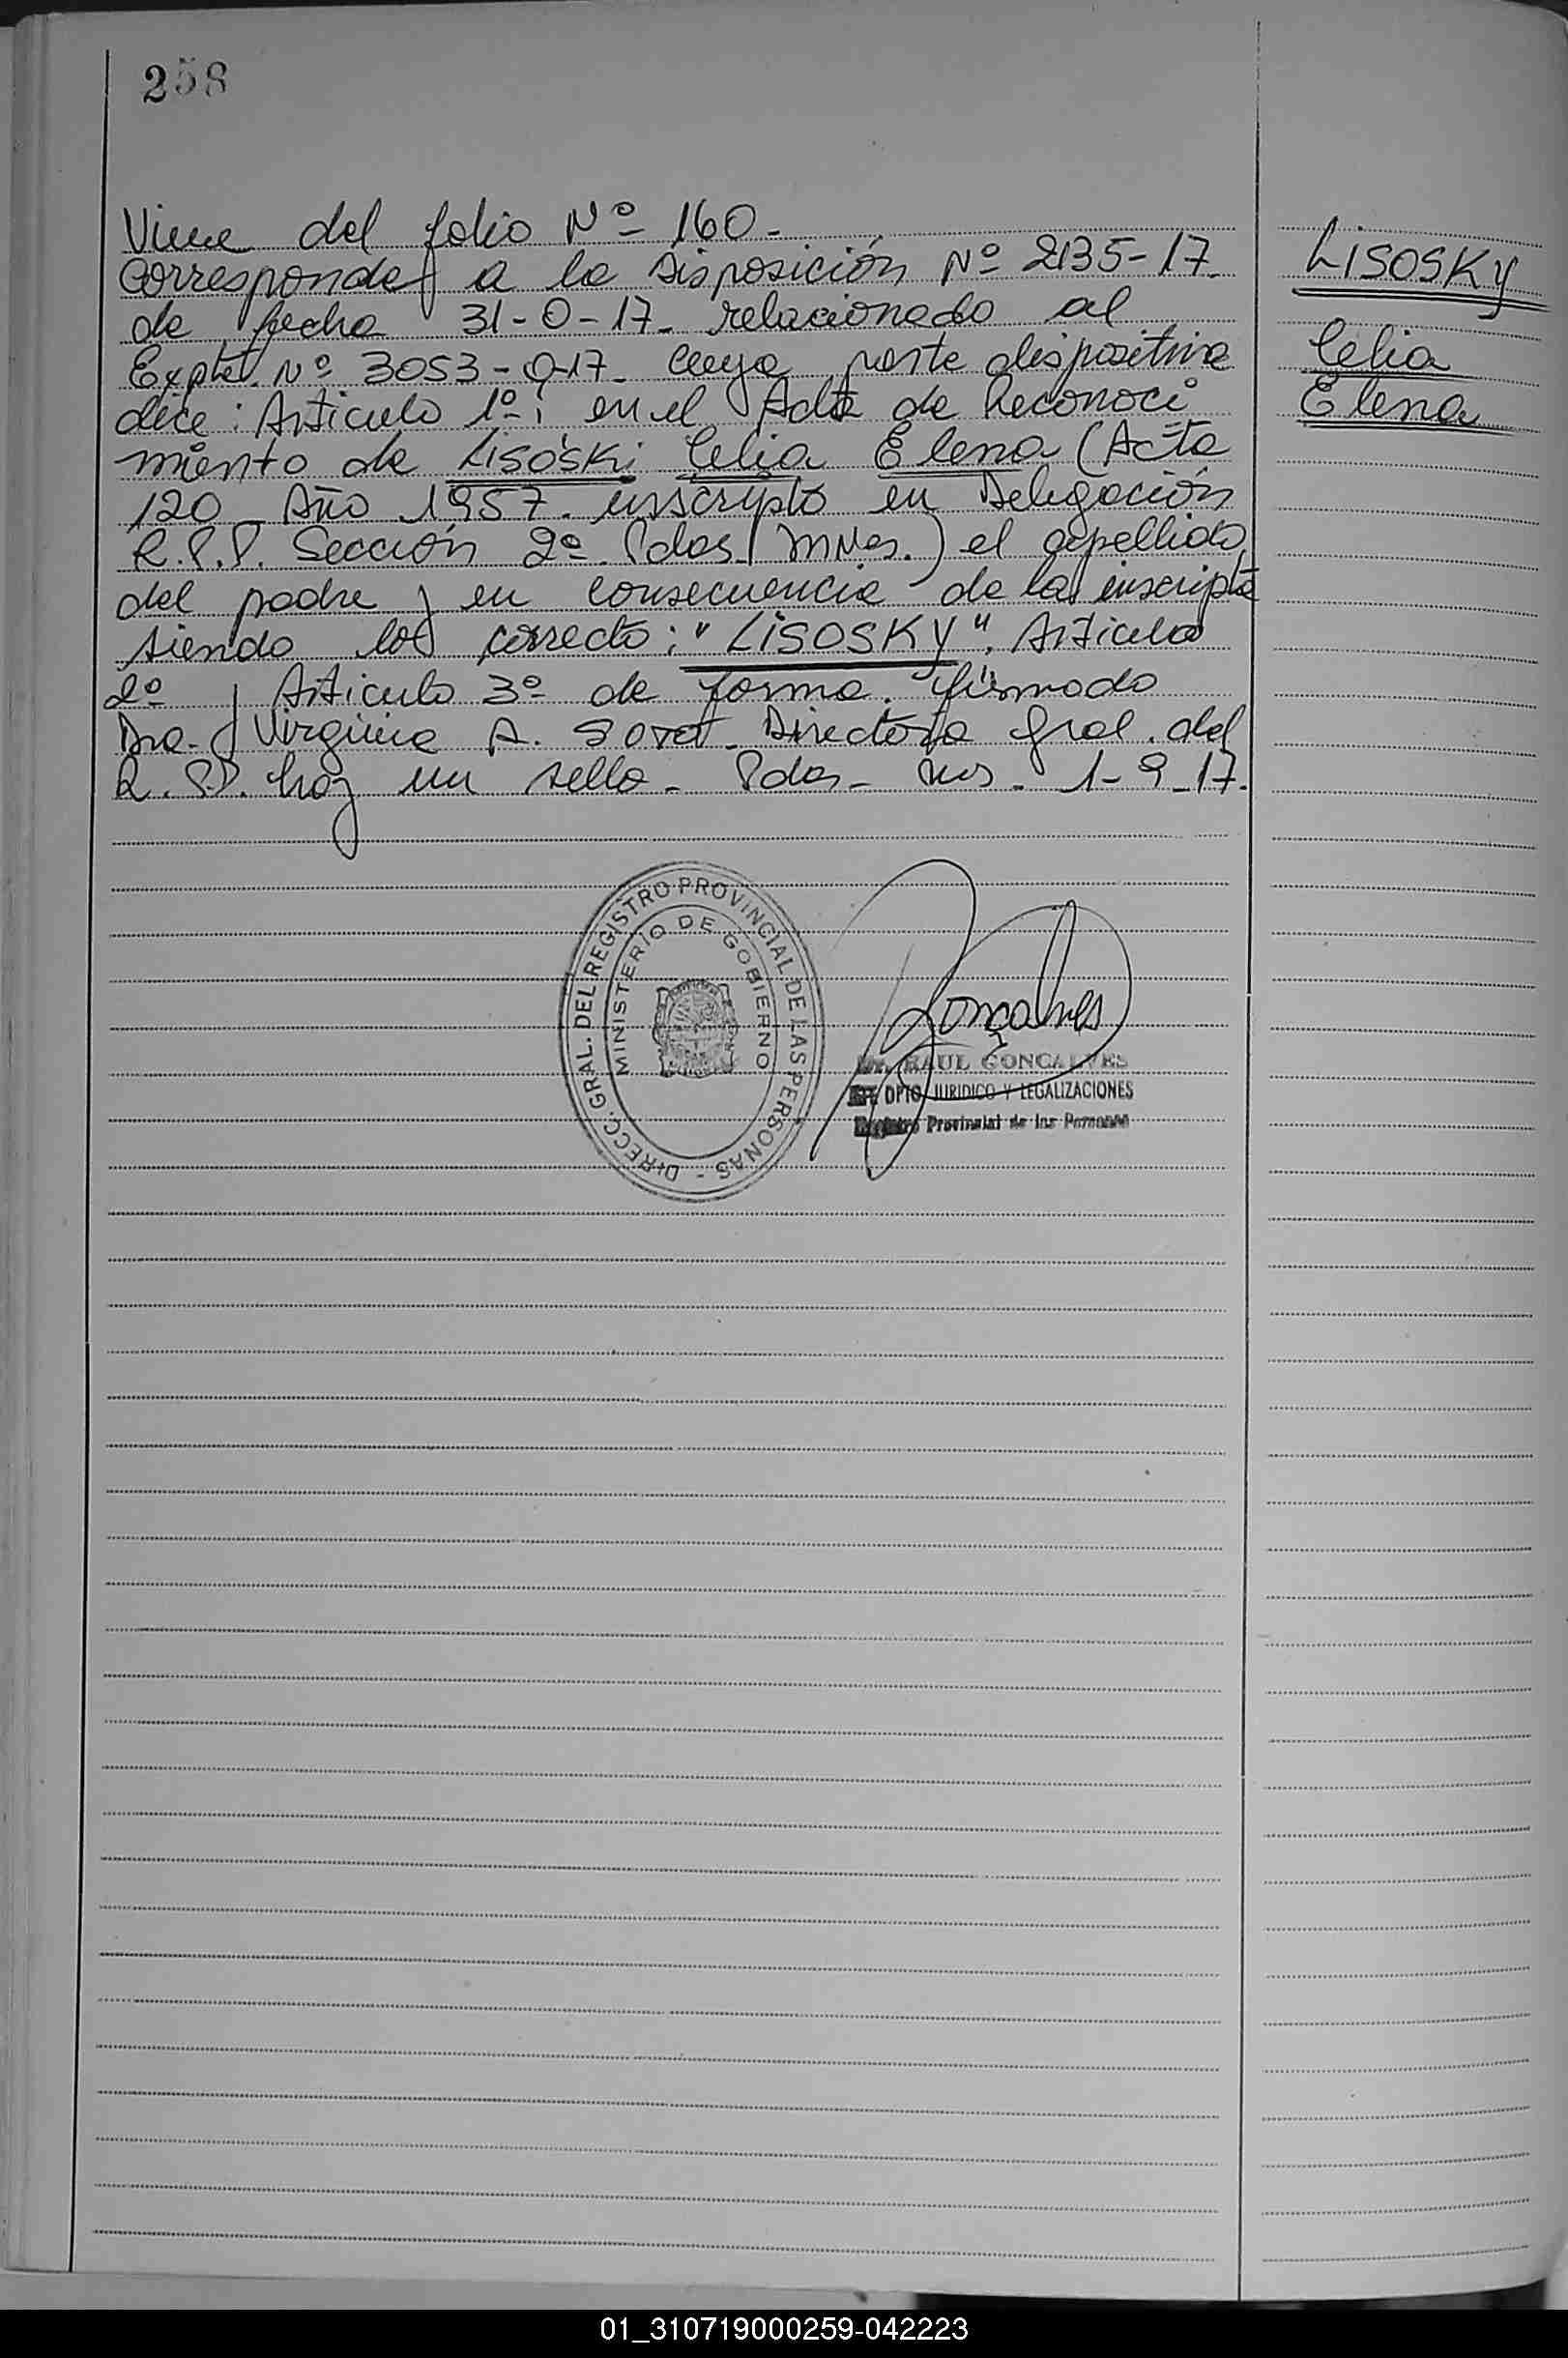 258
Viene del folio Nº 160-
LISOSKY
Corresponde a la Disposición Nº 2135-17-
de fecha 31-0-17- relacionado al
Celia
Expte. Nº 3053- -17- cuya parte dispositiva
Elena
dice: Articulo 1º: en el Acta de Reconoci
miento de Lisoski Celia Elena (Acta
120 Año 1957. inscripto en Delegación
R.P.P. Sección 2º Pdas. Mnes.) el apellido
del padre y en consecuencia de la inscripta
siendo lo correcto: "LISOSKY". Articulo
2º y Articulo 3º de forma. firmado
Dra. Virginia A. Directora Gral. del
R.P.P. hay un sello- Pdas- Mns. 1-9-17.
DIRECC. GRAL. DEL REGISTRO PROVINCIAL DE LAS PERSONAS -
MINISTERIO DE GOBIERNO
Gonçalves
Dr. RAUL GONCALVES
DPTO. JURIDICO Y LEGALIZACIONES
Registro Provincial de las Personas
01_310719000259-042223